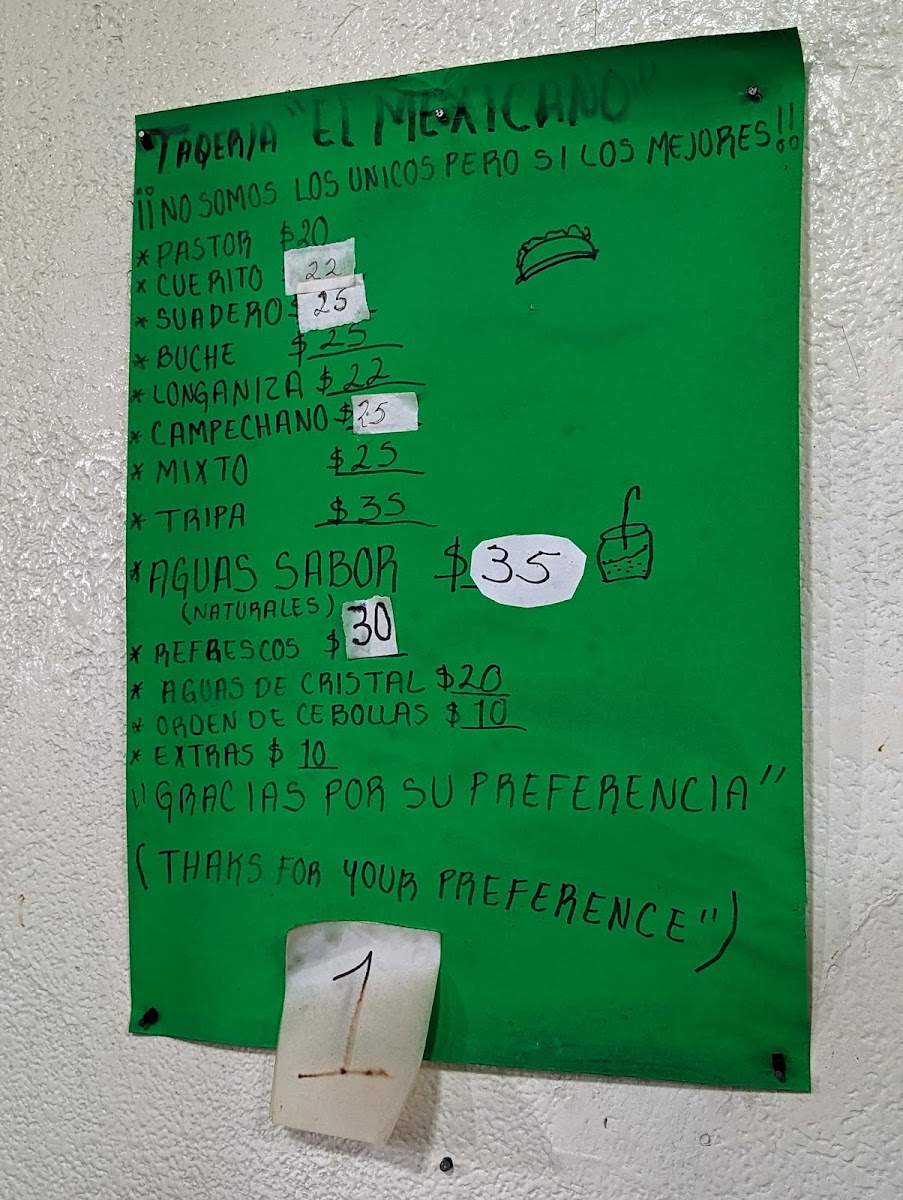 TAQERIA "EL MEXICANO"
¡¡NO SOMOS LOS UNICOS PERO SI LOS MEJORES!!
* PASTOR $20
* CUERITO 22
* SUADERO $25
* BUCHE $25
* LONGANIZA $22
* CAMPECHANO $25
* MIXTO $25
* TRIPA $35
* AGUAS SABOR $35
(NATURALES)
* REFRESCOS $30
* AGUAS DE CRISTAL $20
* ORDEN DE CEBOLLAS $10
* EXTRAS $10
¡¡GRACIAS POR SU PREFERENCIA"
(THAKS FOR YOUR PREFERENCE")
1